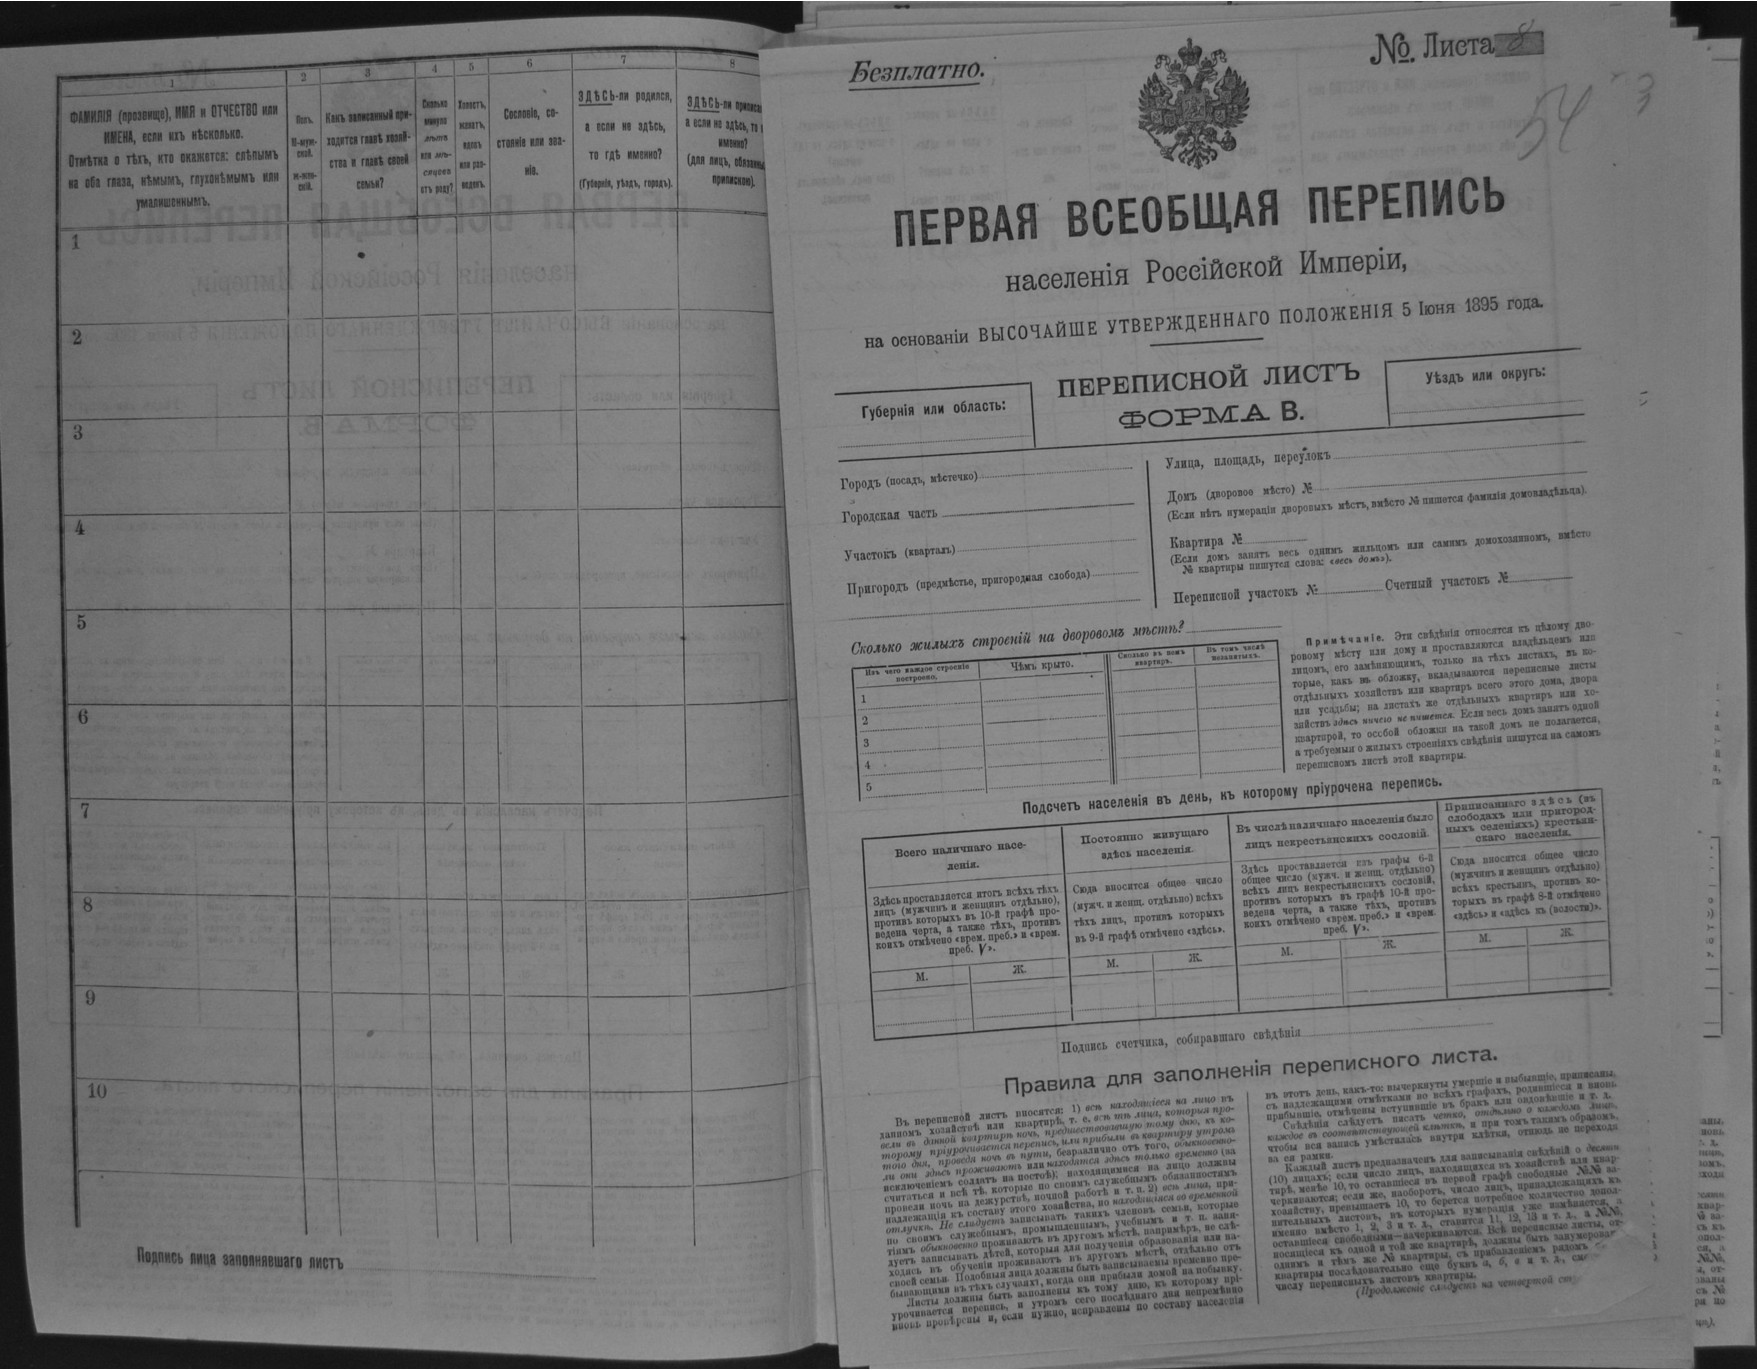 1 2 3 4 5 6 7 8
ФАМИЛІЯ (прозвище), ИМЯ и ОТЧЕСТВО или
ИМЕНА, если ихъ нѣсколько.
Отмѣтка о тѣхъ, кто окажется: слѣпымъ
на оба глаза, нѣмымъ, глухонѣмымъ или
умалишеннымъ.
Полъ.
М-муж-
ской.
Ж-жен-
скій.
Какъ записанный при-
ходится главѣ хозяй-
ства и главѣ своей
семьи?
Сколько
минуло
лѣтъ
или мѣ-
сяцевъ
отъ роду?
Холостъ,
женатъ,
вдовъ
или раз-
веденъ.
Сословіе, со-
стояніе или зва-
ніе.
ЗДѢСЬ-ли родился,
а если не здѣсь,
то гдѣ именно?
(Губернія, уѣздъ, городъ).
ЗДѢСЬ-ли приписан
а если не здѣсь, то
именно?
(для лицъ, обязанн
припиской).
1
2
3
4
5
6
7
8
9
10
Подпись лица заполнявшаго листъ
Безплатно.
№. Листа 8
54 3
ПЕРВАЯ ВСЕОБЩАЯ ПЕРЕПИСЬ
населенія Россійской Имперіи,
на основаніи ВЫСОЧАЙШЕ УТВЕРЖДЕННАГО ПОЛОЖЕНІЯ 5 Іюня 1895 года.
Губернія или область:
ПЕРЕПИСНОЙ ЛИСТЪ
ФОРМА В.
Уѣздъ или округъ:
Городъ (посадъ, мѣстечко)
Городская часть
Участокъ (кварталъ)
Пригородъ (предмѣстье, пригородная слобода)
Улица, площадь, переулокъ
Домъ (дворовое мѣсто) №
(Если нѣтъ нумераціи дворовыхъ мѣстъ, вмѣсто № пишется фамилія домовладѣльца).
Квартира №
(Если домъ занятъ весь однимъ жильцомъ или самимъ домохозяиномъ, вмѣсто
№ квартиры пишутся слова: «весь домъ»).
Переписной участокъ № Счетный участокъ №
Сколько жилыхъ строеній на дворовомъ мѣстѣ?
Изъ чего каждое строеніе
построено.
Чѣмъ крыто.
Сколько въ немъ
квартиръ.
Въ томъ числѣ
незанятыхъ.
1
2
3
4
5
Примѣчаніе. Эти свѣдѣнія относятся къ цѣлому дво-
ровому мѣсту или дому и проставляются владѣльцемъ или
лицомъ, его замѣняющимъ, только на тѣхъ листахъ, въ ко-
торые, какъ въ обложку, вкладываются переписные листы
отдѣльныхъ хозяйствъ или квартиръ всего этого дома, двора
или усадьбы; на листахъ же отдѣльныхъ квартиръ или хо-
зяйствъ здѣсь ничего не пишется. Если весь домъ занятъ одной
квартирой, то особой обложки на такой домъ не полагается,
а требуемыя о жилыхъ строеніяхъ свѣдѣнія пишутся на самомъ
переписномъ листѣ этой квартиры.
Подсчетъ населенія въ день, къ которому пріурочена перепись.
Всего наличнаго насе-
ленія.
Здѣсь проставляется итогъ всѣхъ тѣхъ
лицъ (мужчинъ и женщинъ отдѣльно),
противъ которыхъ въ 10-й графѣ про-
ведена черта, а также тѣхъ, противъ
коихъ отмѣчено «врем. преб.» и «врем.
преб. V».
Постоянно живущаго
здѣсь населенія.
Сюда вносится общее число
(мужч. и женщ. отдѣльно) всѣхъ
тѣхъ лицъ, противъ которыхъ
въ 9-й графѣ отмѣчено «здѣсь».
Въ числѣ наличнаго населенія было
лицъ некрестьянскихъ сословій.
Здѣсь проставляется изъ графы 6-й
общее число (мужч. и женщ. отдѣльно)
всѣхъ лицъ некрестьянскихъ сословій,
противъ которыхъ въ графѣ 10-й про-
ведена черта, а также тѣхъ, противъ
коихъ отмѣчено «врем. преб.» и «врем.
преб. V».
Приписаннаго здѣсь (въ
слободахъ или пригород-
ныхъ селеніяхъ) крестьян-
скаго населенія.
Сюда вносится общее число
(мужчинъ и женщинъ отдѣльно)
всѣхъ крестьянъ, противъ ко-
торыхъ въ графѣ 8-й отмѣчено
«здѣсь» и «здѣсь къ (волости)».
М. Ж. М. Ж. М. Ж. М. Ж.
Подпись счетчика, собиравшаго свѣдѣнія
Правила для заполненія переписного листа.
Въ переписной листъ вносятся: 1) всѣ находящіеся на лицо въ
данномъ хозяйствѣ или квартирѣ, т. е. всѣ тѣ лица, которыя про-
вели въ данной квартирѣ ночь, предшествовавшую тому дню, къ ко-
торому пріурочивается перепись, или прибыли въ квартиру утромъ
того дня, проведя ночь въ пути, безразлично отъ того, обыкновенно-
ли они здѣсь проживаютъ или находятся здѣсь только временно (за
исключеніемъ солдатъ на постоѣ); находящимися на лицо должны
считаться и всѣ тѣ, которые по своимъ служебнымъ обязанностямъ
провели ночь на дежурствѣ, ночной работѣ и т. п. 2) всѣ лица, при-
надлежащія къ составу этого хозяйства, но находящіяся во временной
отлучкѣ. Не слѣдуетъ записывать такихъ членовъ семьи, которые
по своимъ служебнымъ, промышленнымъ, учебнымъ и т. п. заня-
тіямъ обыкновенно проживаютъ въ другомъ мѣстѣ, напримѣръ, не слѣ-
дуетъ записывать дѣтей, которыя для полученія образованія или на-
ходясь въ обученіи проживаютъ въ другомъ мѣстѣ, отдѣльно отъ
своей семьи. Подобныя лица должны быть записываемы временно пре-
бывающими въ тѣхъ случаяхъ, когда они прибыли домой на побывку.
Листы должны быть заполнены къ тому дню, къ которому прі-
урочивается перепись, и утромъ сего послѣдняго дня непремѣнно
вновь провѣрены и, если нужно, исправлены по составу населенія
въ этотъ день, какъ-то: вычеркнуты умершіе и выбывшіе, приписаны,
съ надлежащими отмѣтками во всѣхъ графахъ, родившіеся и вновь
прибывшіе, отмѣчены вступившіе въ бракъ или овдовѣвшіе и т. д.
Свѣдѣнія слѣдуетъ писать четко, отдѣльно о каждомъ лицѣ,
каждое въ соотвѣтствующей клѣткѣ, и при томъ такимъ образомъ,
чтобы вся запись умѣстилась внутри клѣтки, отнюдь не переходя
за ея рамки.
Каждый листъ предназначенъ для записыванія свѣдѣній о десяти
(10) лицахъ; если число лицъ, находящихся въ хозяйствѣ или квар-
тирѣ, менѣе 10, то оставшіеся въ первой графѣ свободные №№ за-
черкиваются; если же, наоборотъ, число лицъ, принадлежащихъ къ
хозяйству, превышаетъ 10, то берется потребное количество допол-
нительныхъ листовъ, въ которыхъ нумерація уже измѣняется, а
именно вмѣсто 1, 2, 3 и т. д., ставится 11, 12, 13 и т. д., а №№,
оставшіеся свободными—зачеркиваются. Всѣ переписные листы, от-
носящіеся къ одной и той же квартирѣ, должны быть занумерован
однимъ и тѣмъ же № квартиры, съ прибавленіемъ рядомъ
квартиры послѣдовательно еще буквъ а, б, в и т. д., см
числу переписныхъ листовъ квартиры.
(Продолженіе слѣдуетъ на четвертой ст